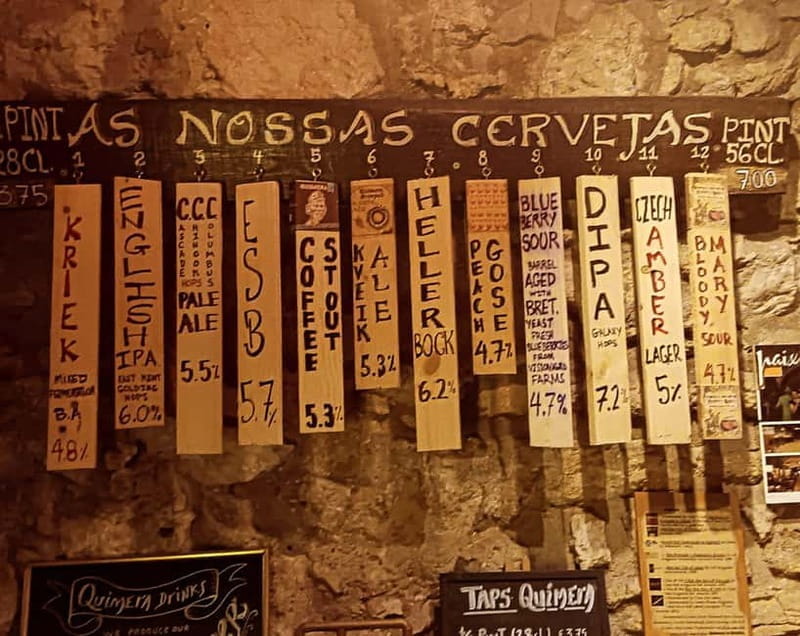 AS NOSSAS CERVEJAS
PINT
28CL.
375
PINT
56CL.
700
1
KRIEK
MIXED
FERMENTATION
B.A
4.8%
2
ENGLISH
IPA
EAST KENT
GOLDING
HOPS
6.0%
3
C.C.C
CASCADE
CHINOOK
COLUMBUS
HOPS
PALE
ALE
5.5%
4
ESB
5.7%
5
COFFEE
STOUT
5.3%
6
KVEIK
ALE
5.3%
7
HELLER
BOCK
6.2%
8
PEACH
GOSE
4.7%
9
BLUE
BERRY
SOUR
BARREL
AGED
WITH
BRET.
YEAST
FRESH
BLUEBERRIES
FROM
FARMS
4.7%
10
DIPA
GALAXY
HOPS
7.2%
11
CZECH
AMBER
LAGER
5%
12
BLOODY
MARY
SOUR
4.7%
QUIMERA DRINKS
WE PRODUCE OUR
TAPS QUIMERA
½ PINT (28CL) £3.75